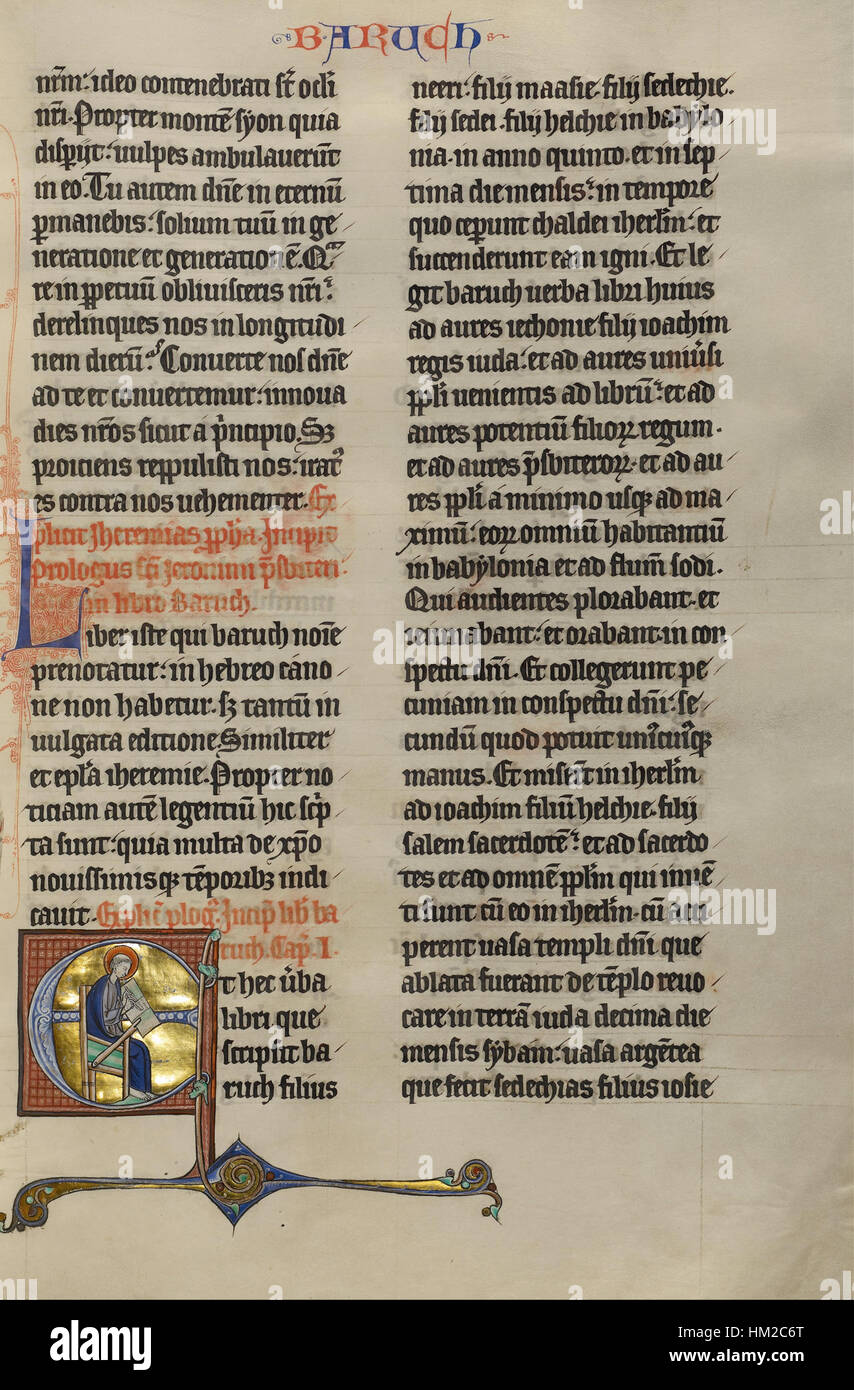 BARUCH
nr̄m: ideo contenebrati st̄ ocl̄i
nr̄i. Propter montē syon quia
disperijt: uulpes ambulauerūt
in eo. Tu autem dn̄e in eternū
permanebis: solium tuū in ge
neratione et generationē. Qua
re in perpetuū obliuisceris nr̄i:
derelinques nos in longitudi
nem dierū? Conuerte nos dn̄e
ad te et conuertemur: innoua
dies nr̄os sicut a pͥncipio. Sꝫ
proiciens reppulisti nos: iratꝰ
es contra nos uehementer. Ex
plicit Iheremias ꝓpħa. Incipit
prologus sc̄i Ieronimi p̄sbiteri
in libro Baruch.
Liber iste qui baruch noīe
prenotatur: in hebreo cano
ne non habetur. sꝫ tantū in
uulgata editione. Similiter
et epl̄a iheremie. Propter no
ticiam autē legentiū hic scͥp
ta sunt: quia multa de xp̄o
nouissimisqꝫ tēporibꝫ indi
cauit. Explic̄ ploḡ. Incip̄ lib̄ ba
ruch. Cap̄. I.
Et hec ūba
libri que
scripsit ba
ruch filius
neeri. filij maasie. filij sedechie.
filij sedei. filij helchie in babylo
nia. in anno quinto. et in sep
tima die mensis: in tempore
quo ceperunt chaldei iherl̄m: et
succenderunt eam igni. Et le
git baruch uerba libri huius
ad aures iechonie filij ioachim
regis iuda: et ad aures uniūsi
ppl̄i uenientis ad librū: et ad
aures potentiū filioꝝ regum.
et ad aures p̄sbiteroꝝ. et ad au
res ppl̄i a minimo usqꝫ ad ma
ximū: eoꝝ omniū habitantiū
in babylonia et ad flum̄ sodi.
Qui audientes plorabant. et
ieiunabant: et orabant in con
spectu dn̄i. Et collegerunt pe
cuniam in conspectu dn̄i: se
cundū quod potuit uniꝰcuiꝰqꝫ
manus. Et miserūt in iherl̄m
ad ioachim filiū helchie. filij
salem sacerdotē: et ad sacerdo
tes et ad omnē ppl̄m qui inuē
ti sunt cū eo in iherl̄m. cū acci
perent uasa templi dn̄i que
ablata fuerant de tēplo reuo
care in terrā iuda decima die
mensis syban: uasa argētea
que fecit sedechias filius iosie
alamy
Image ID: HM2C6T
www.alamy.com